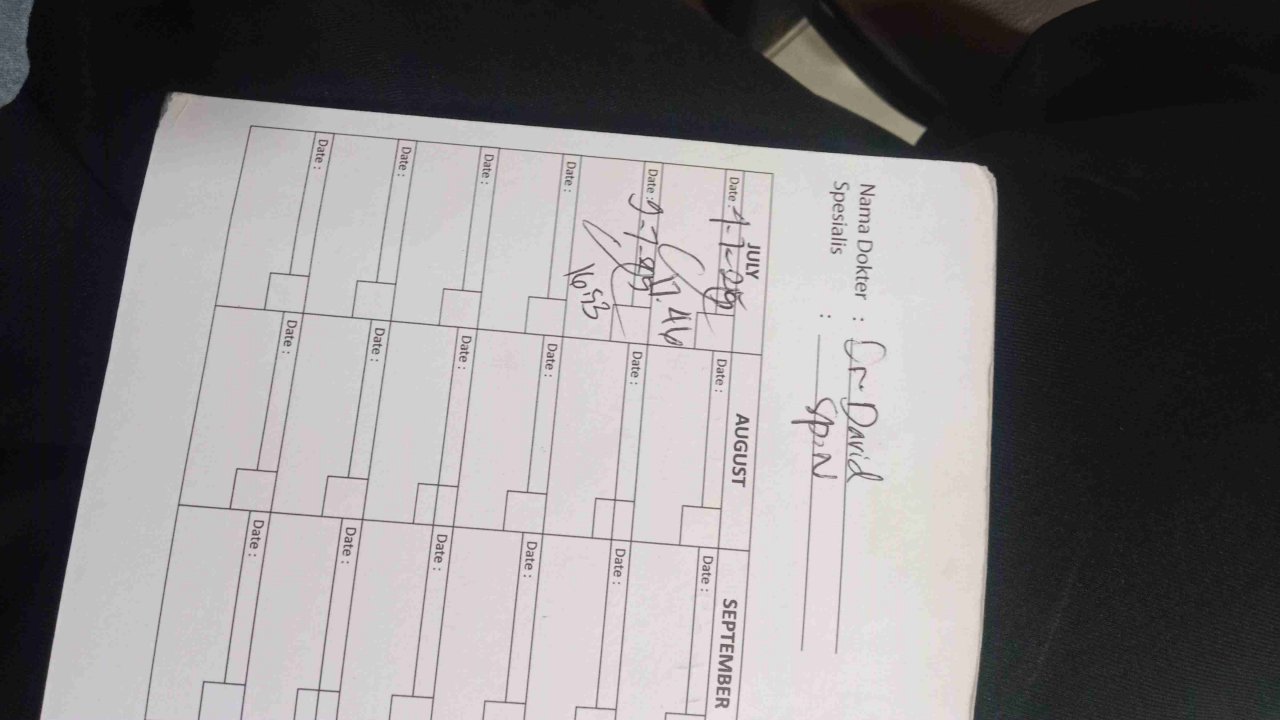 Nama Dokter : Dr David
Spesialis : Sp.N
JULY AUGUST SEPTEMBER
Date : Date : Date :
17.46
Date : 9-7-25 Date : Date :
16.53
Date : Date : Date :
Date : Date : Date :
Date : Date : Date :
Date : Date : Date :